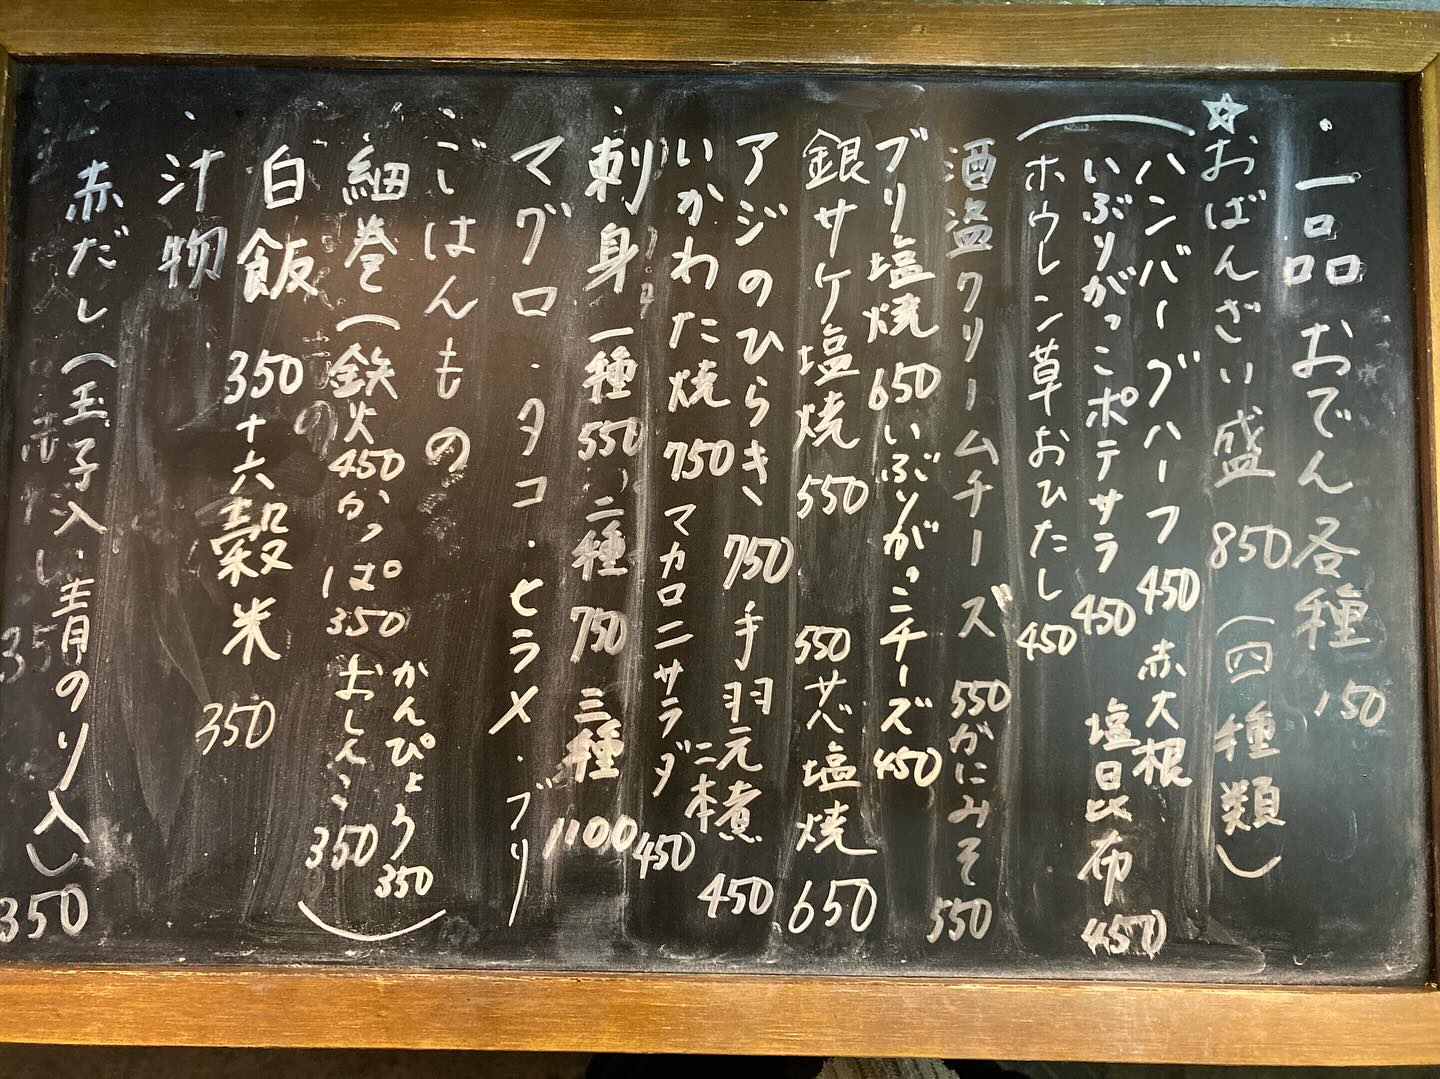 ・一品 おでん各種 150
☆おばんざい盛 850 (四種類)
ハンバーグハーフ 450 赤大根
いぶりがっこポテサラ 450 塩昆布 450
ホウレン草おひたし 450
酒盗クリームチーズ 550 がにみそ 550
ブリ塩焼 650 いぶりがっこチーズ 450
銀サケ塩焼 550 塩焼 650
アジのひらき 750 手羽元煮 二本 450
いかわた焼 750 マカロニサラダ 450
・刺身 一種 550 二種 750 三種 1100
マグロ・タコ・ヒラメ・ブリ
・ごはんもの
細巻(鉄火 450 かっぱ 350 かんぴょう 350
おしんこ 350)
白飯 350 十六穀米 350
・汁物
赤だし(玉子入い青のり入い) 350